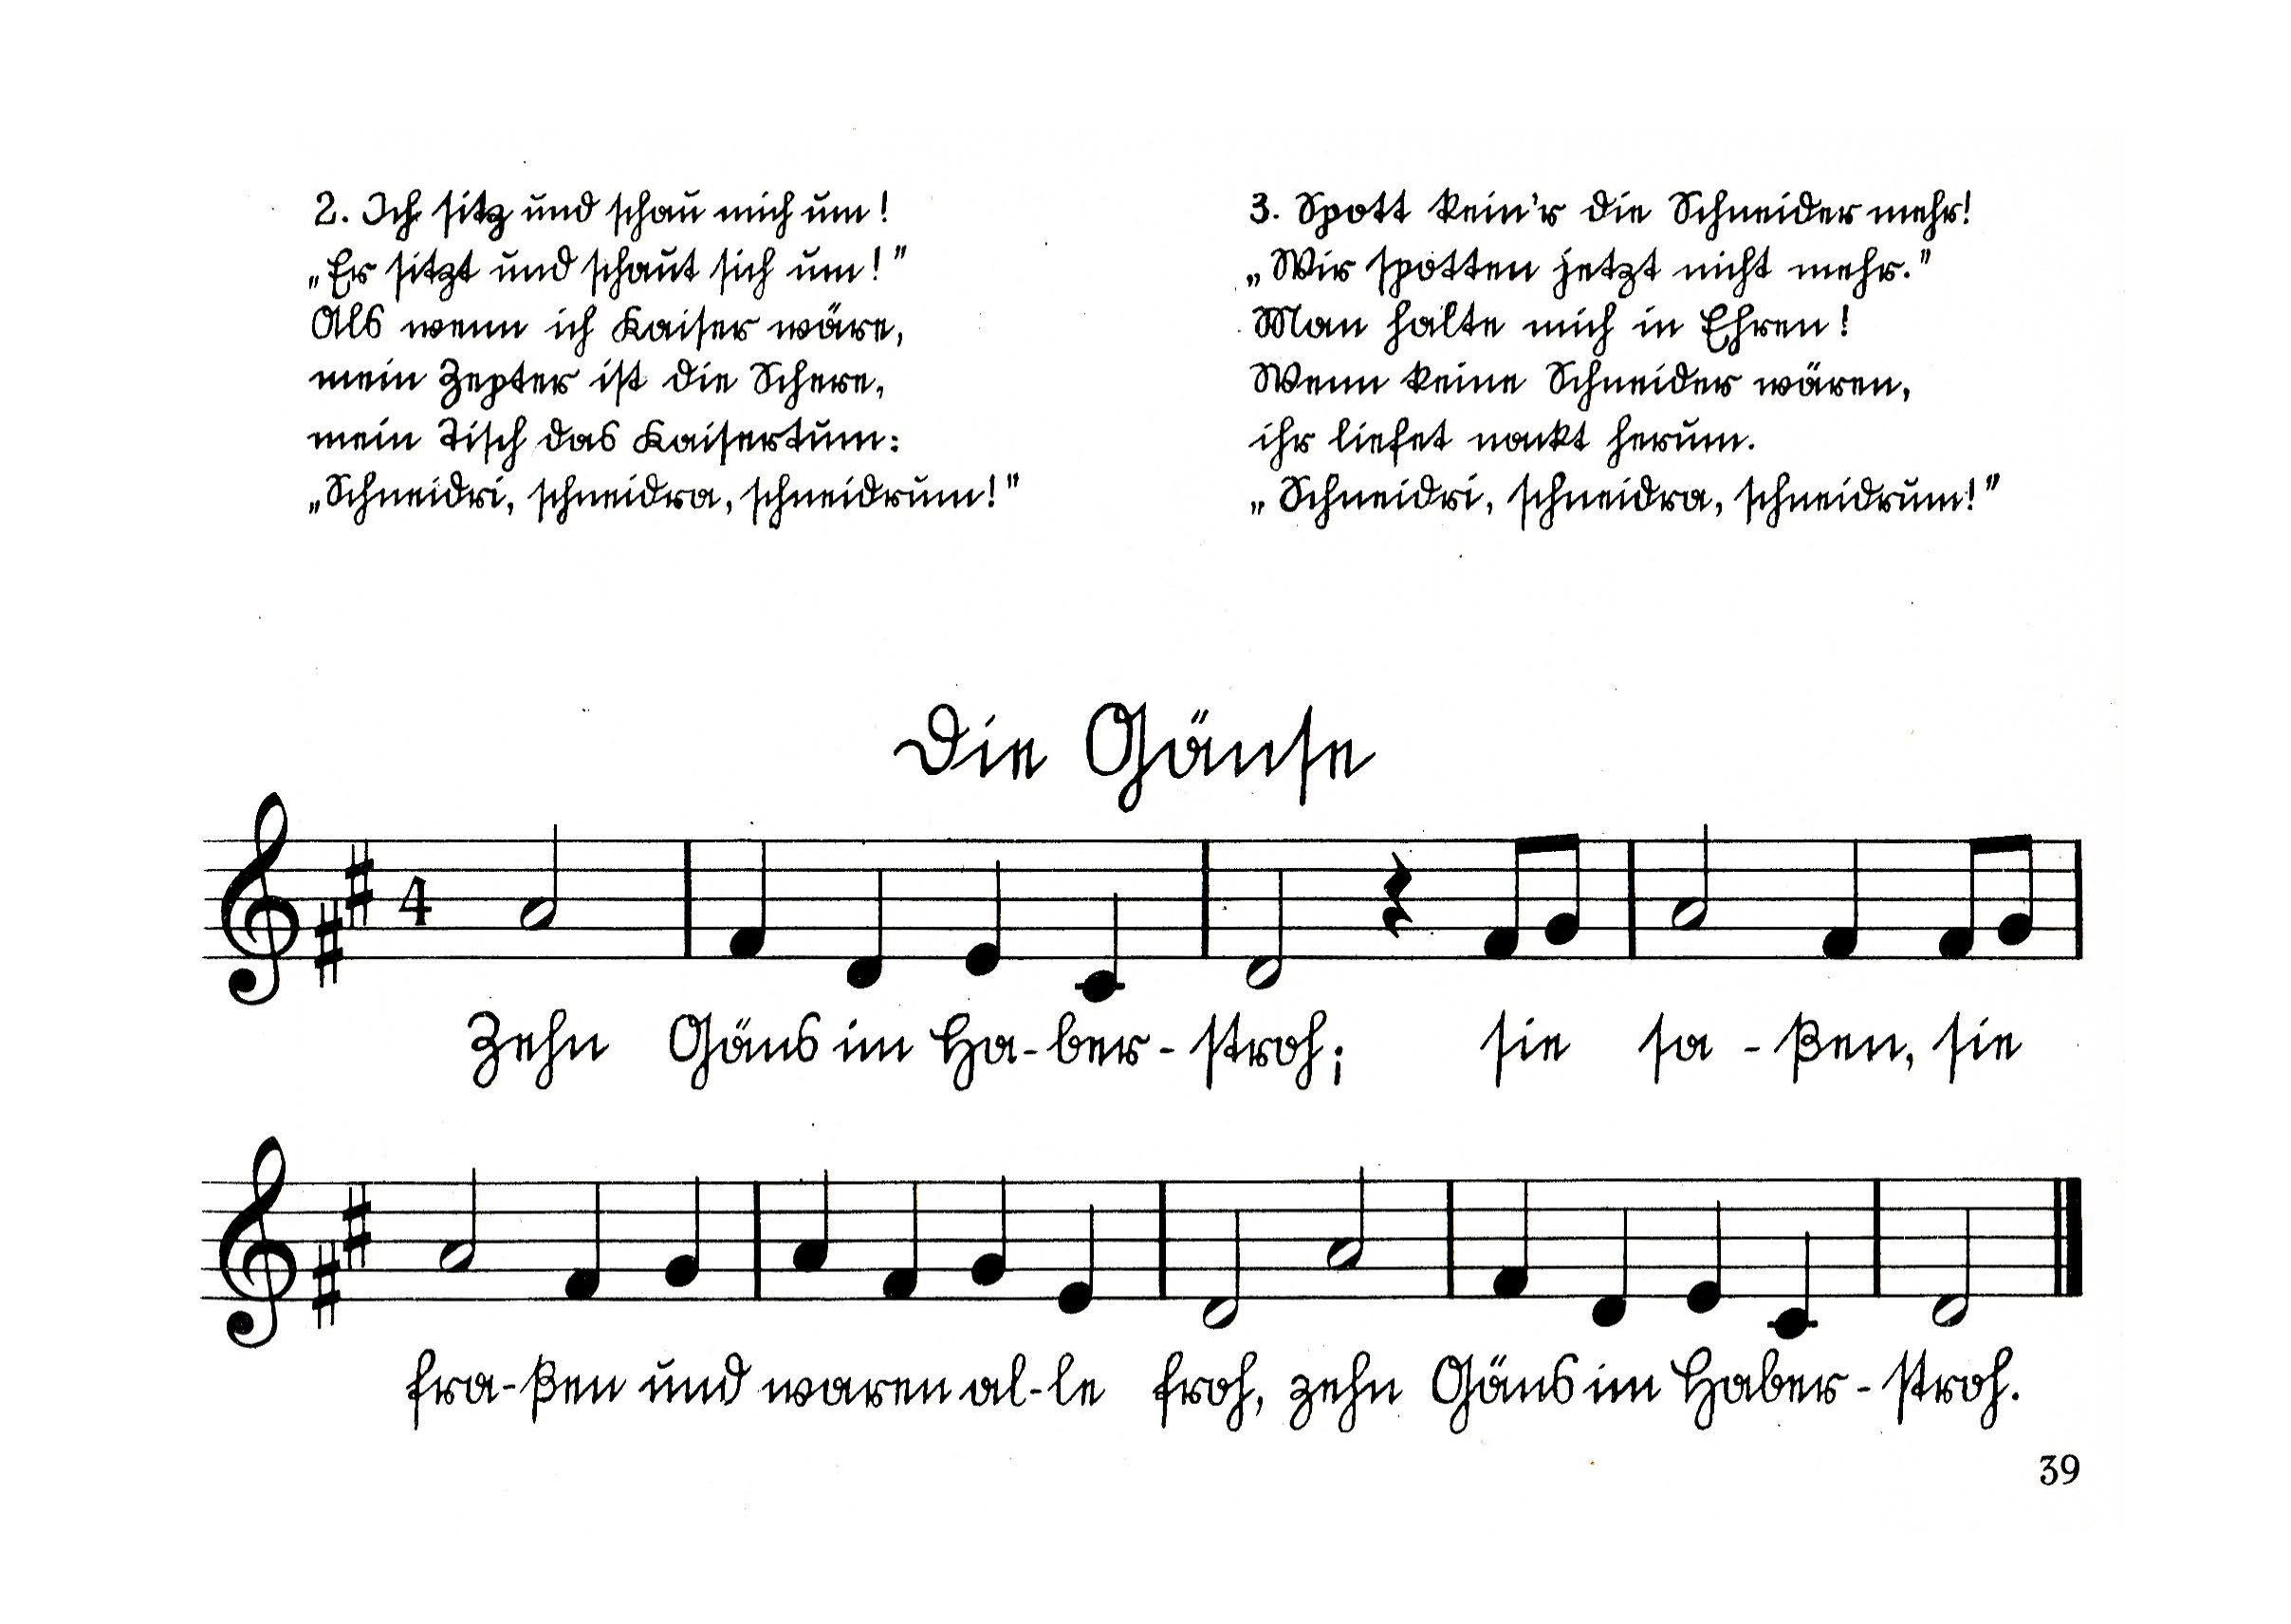 2. Ich sitz und schau mich um!
„Er sitzt und schaut sich um!"
Als wenn ich Kaiser wäre,
mein Zepter ist die Schere,
mein Tisch das Kaisertum:
„Schneidri, schneidra, schneidrum!"
3. Spott kein'r die Schneider mehr!
„Wir spotten jetzt nicht mehr."
Man halte mich in Ehren!
Wenn keine Schneider wären,
ihr liefet nackt herum.
„Schneidri, schneidra, schneidrum!"
Die Gänse
4
Zehn Gäns im Ha-ber-stroh; sie sa-ßen, sie
fra-ßen und waren al-le froh, zehn Gäns im Haber-stroh.
39